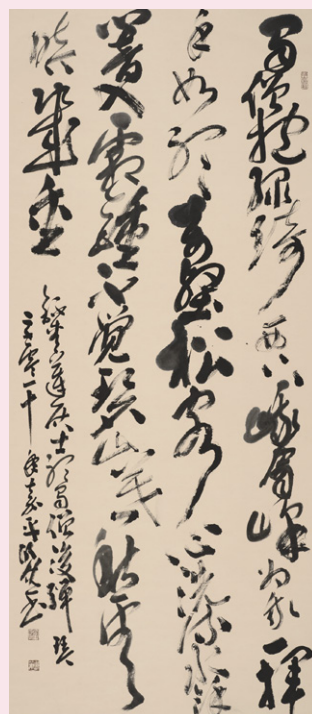 蜀僧抱綠綺西下峨眉峰為我一揮
手如聽萬壑松客心洗流水餘
響入霜鐘不覺碧山暮秋雲
暗幾重
青蓮居士聽蜀僧浚彈琴